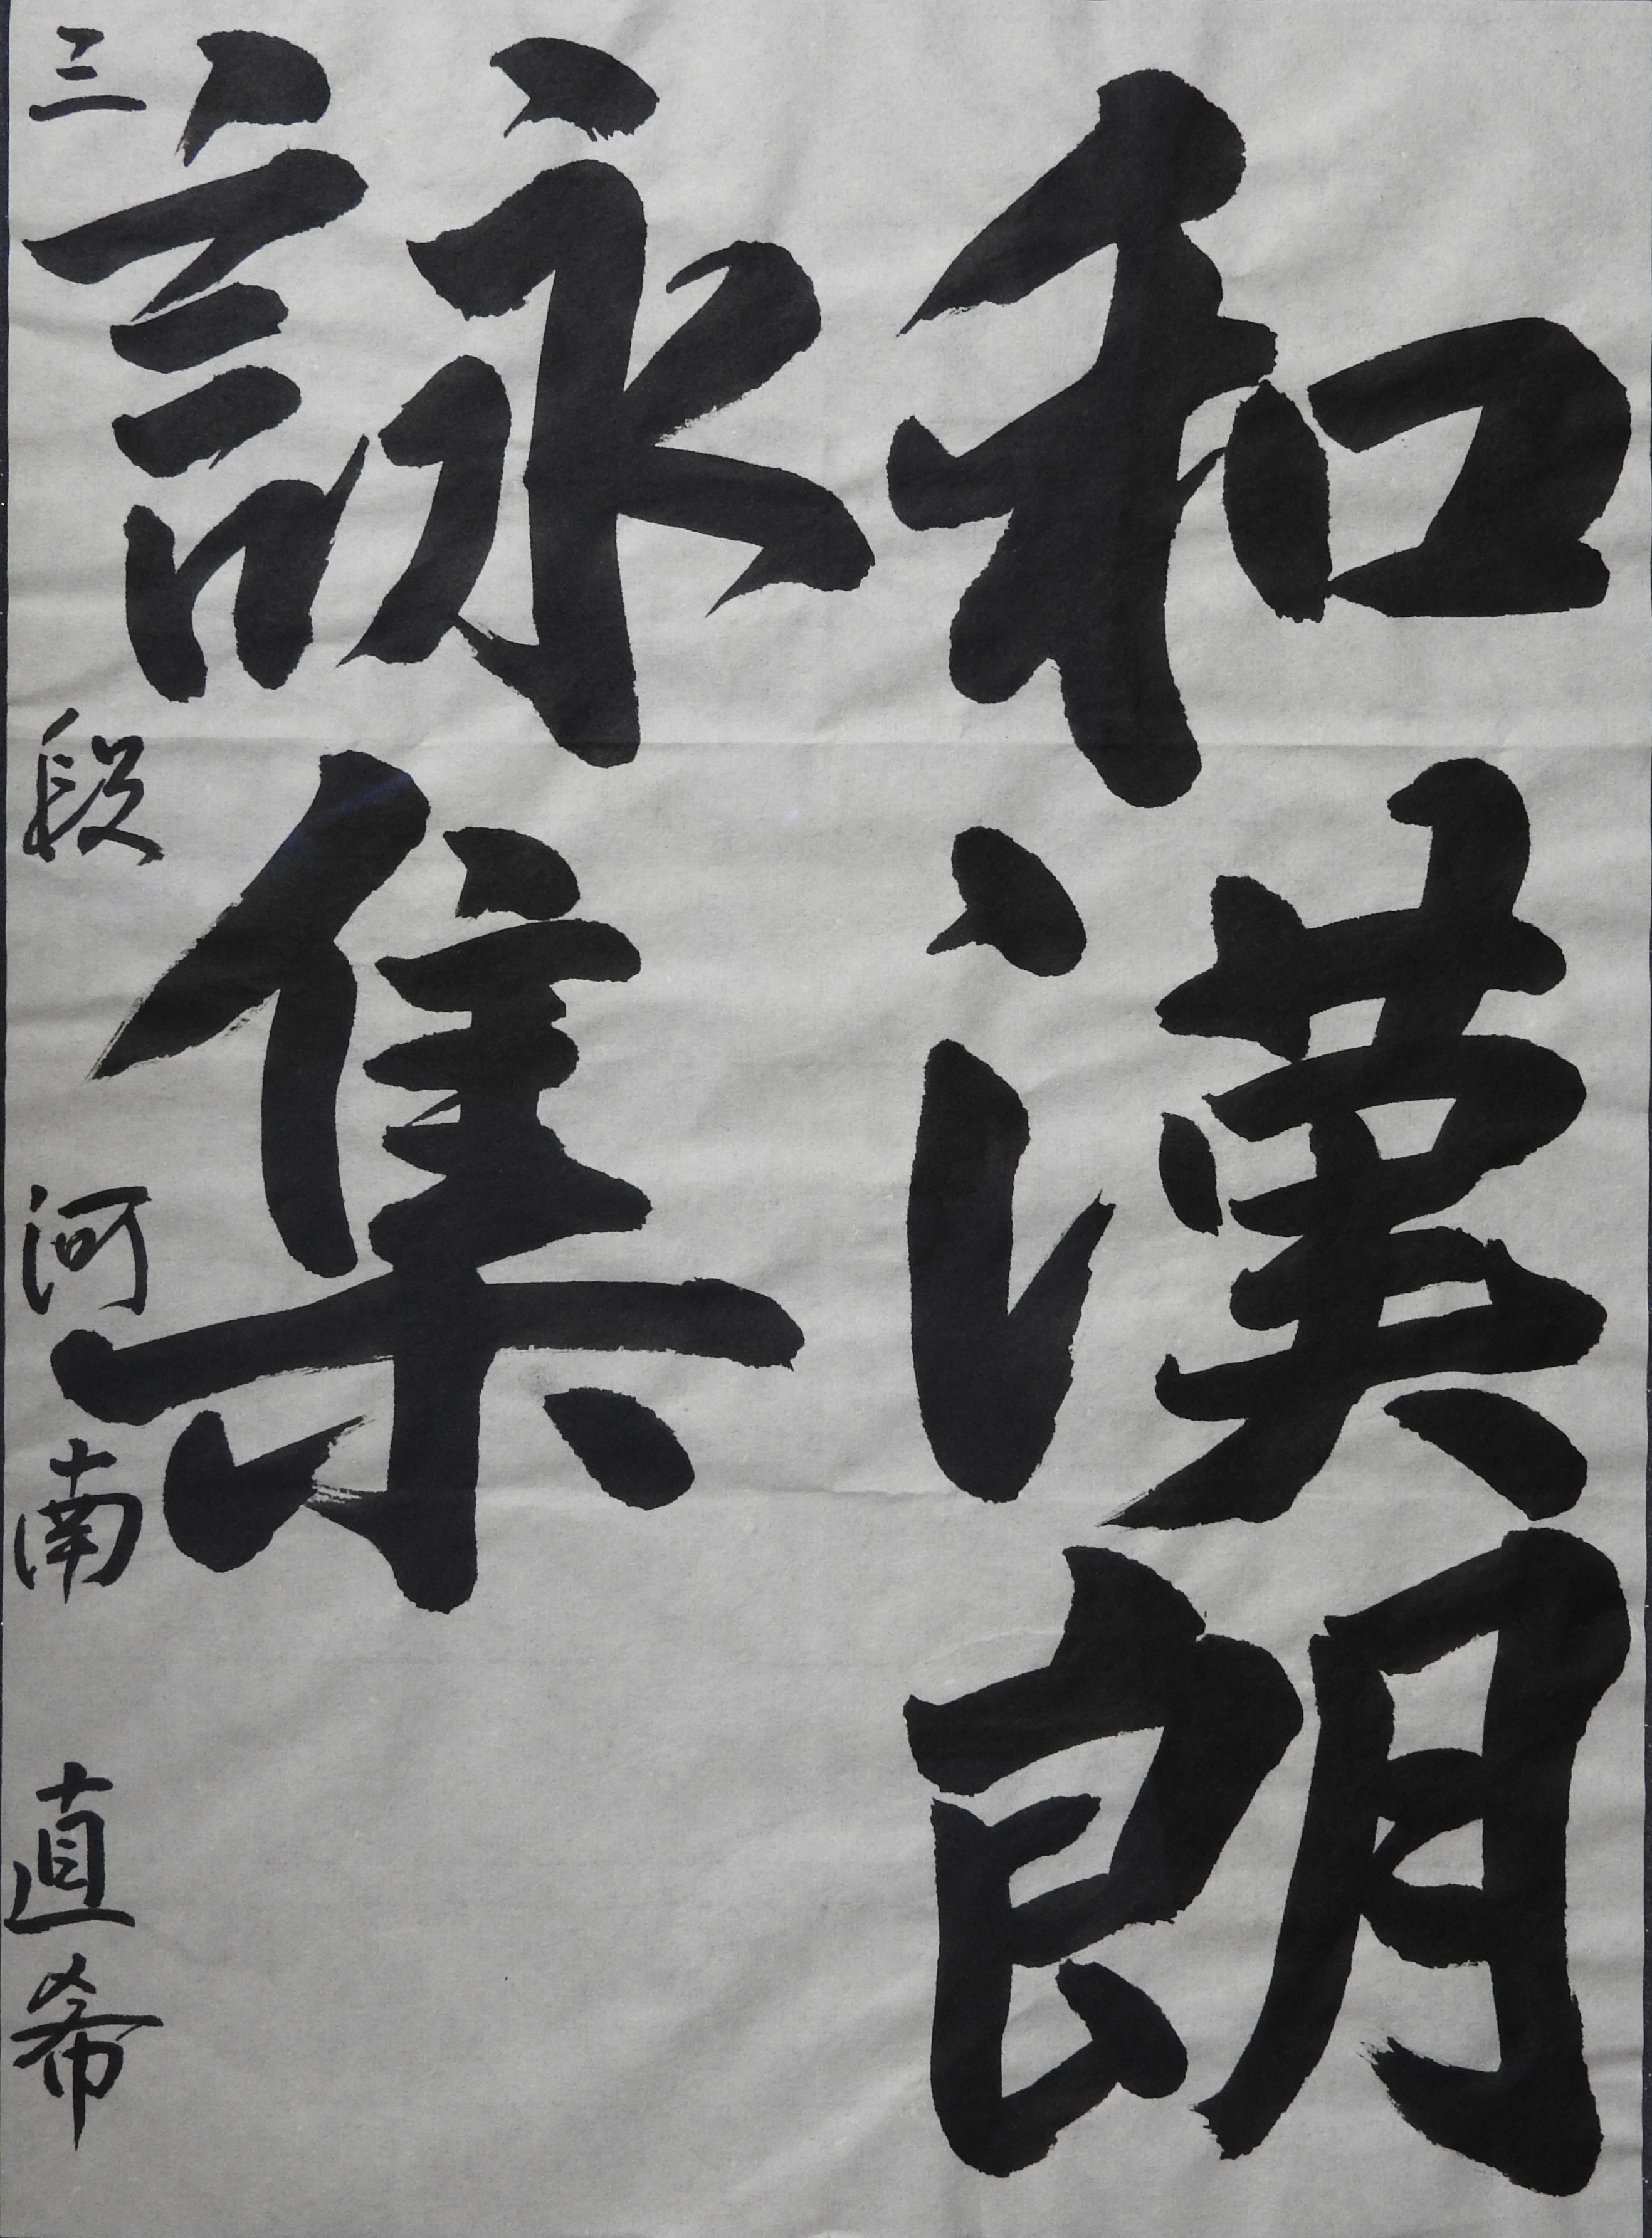 和漢朗
詠集
三段 河南 直希